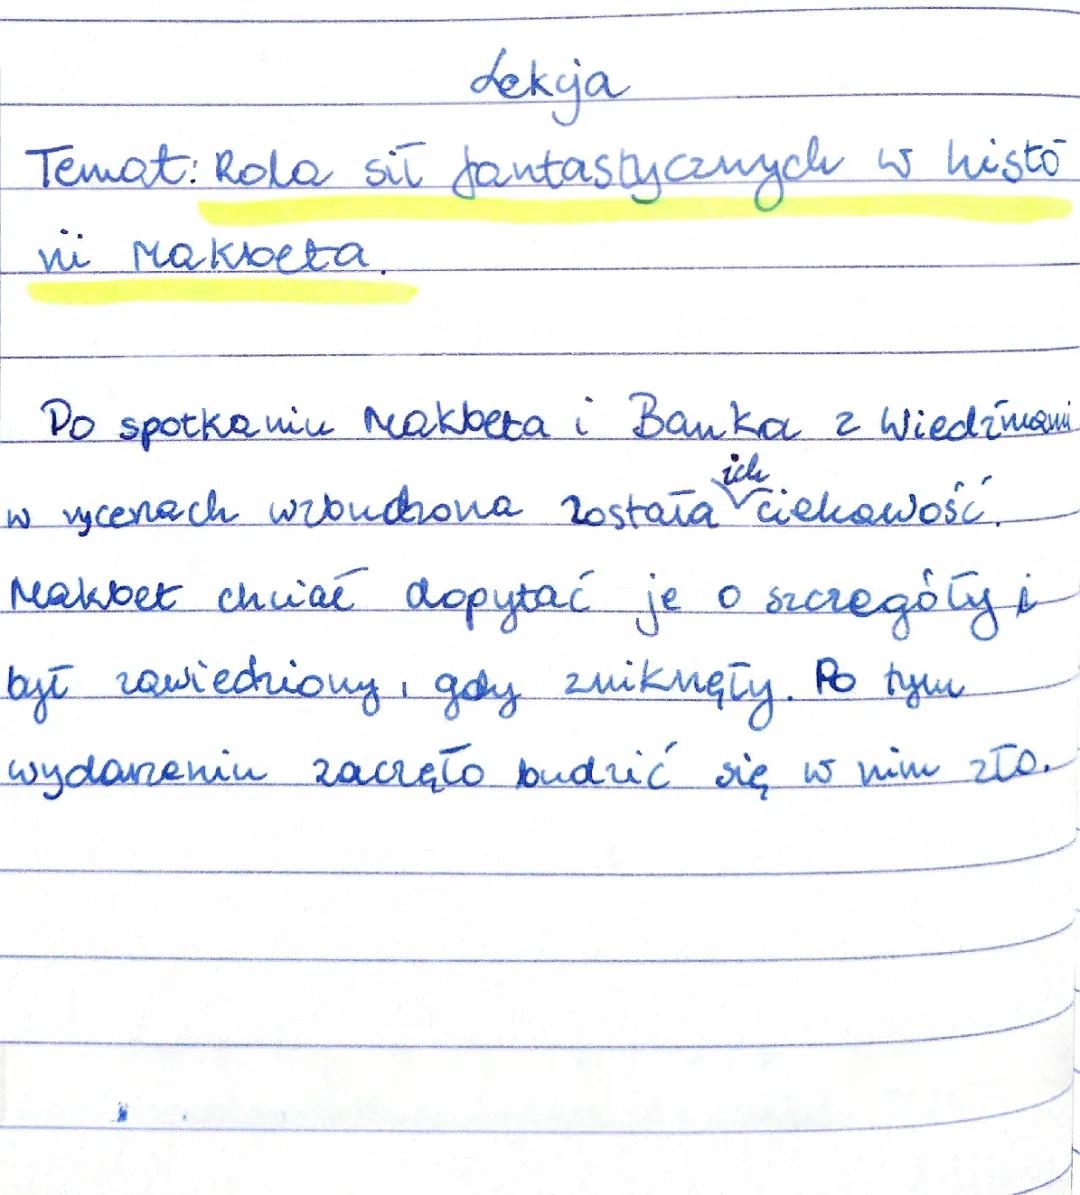 Lekcja
Temat: Rola sił fantastycznych w histo
rii Makbeta.
Po spotkaniu Makbeta i Banka z Wiedźmami
w rycenach wzbudzona została ich ciekawość.
Makbet chciał dopytać je o szczegóły i
był zawiedziony, gdy zniknęły. Po tym
wydarzeniu zaczęło budzić się w nim zło.